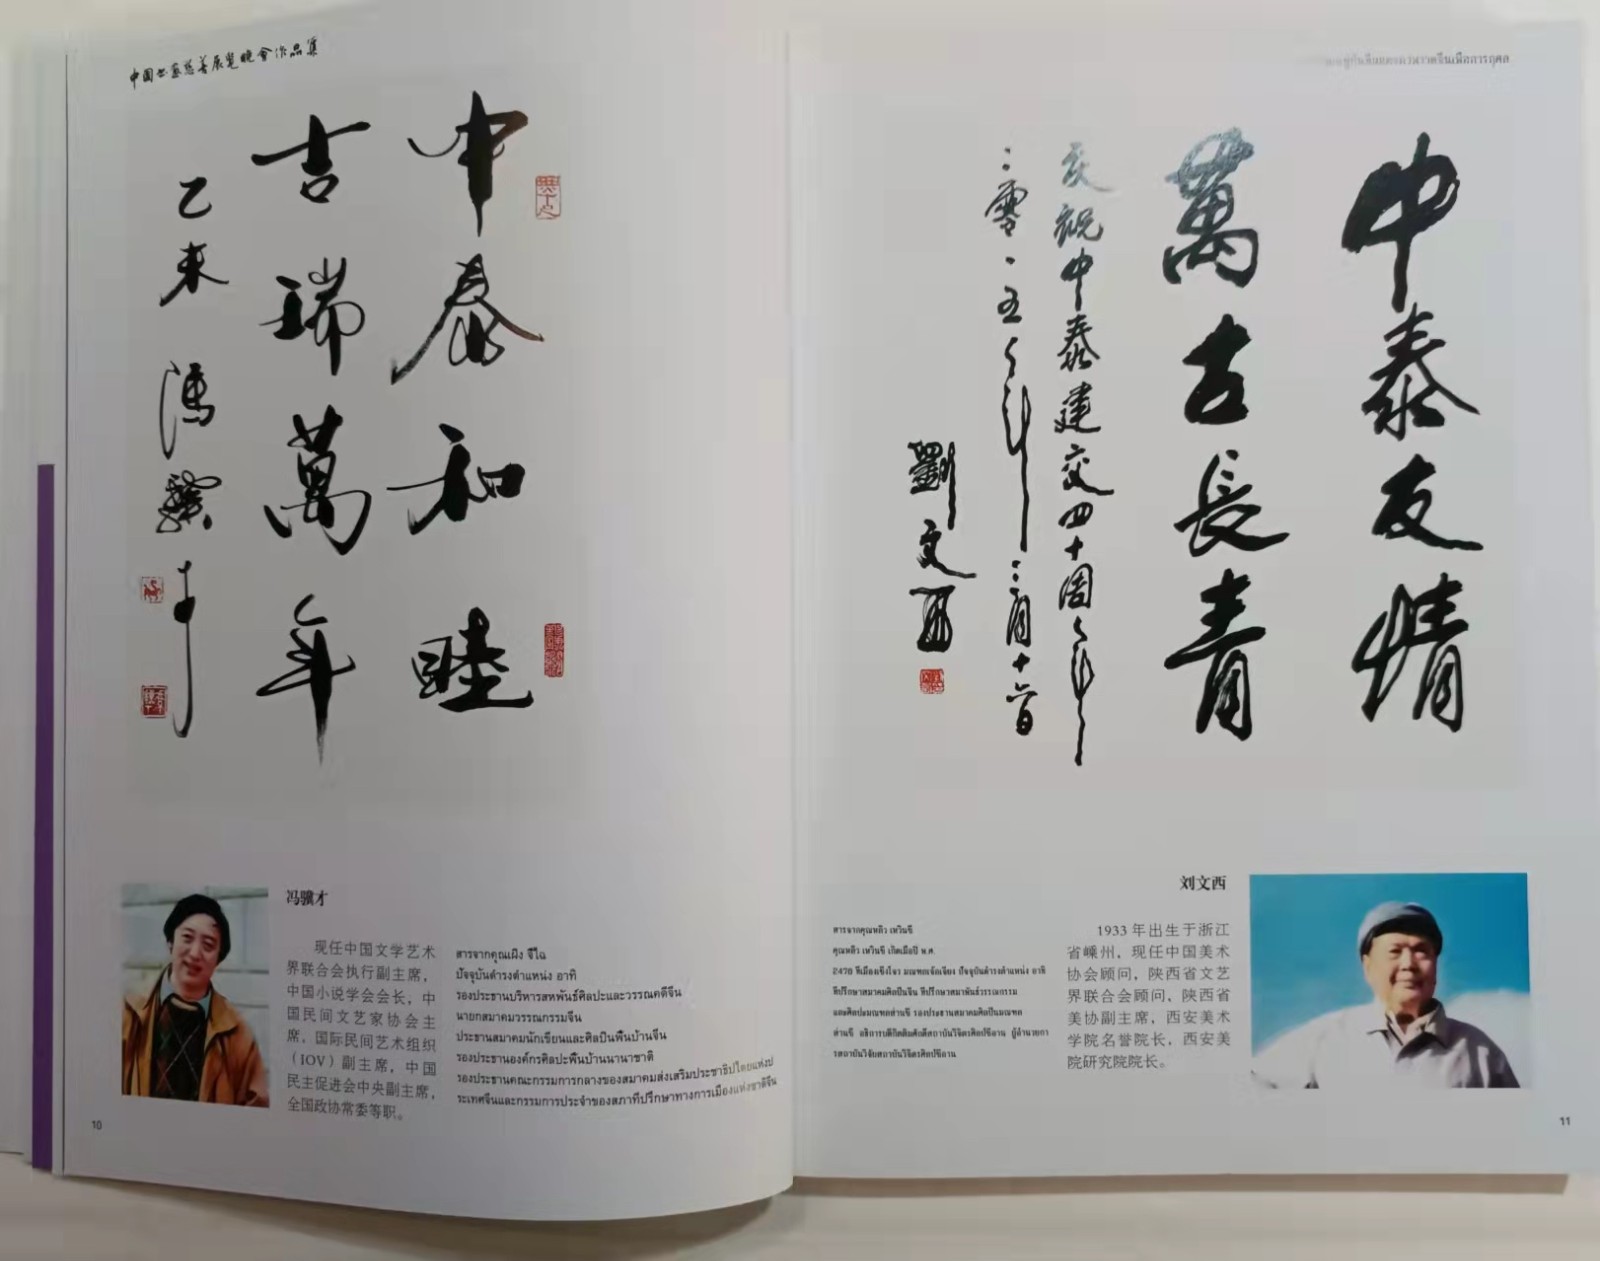 中国书画慈善展览晚会作品集
中泰和睦
吉瑞萬年
乙未 馮驥才
冯骥才
现任中国文学艺术
界联合会执行副主席，
中国小说学会会长，中
国民间文艺家协会主
席，国际民间艺术组织
（IOV）副主席，中国
民主促进会中央副主席，
全国政协常委等职。
สารจากคุณเฝิง จี้ไฉ
ปัจจุบันดำรงตำแหน่ง อาทิ
รองประธานบริหารสหพันธ์ศิลปะและวรรณคดีจีน
นายกสมาคมวรรณกรรมจีน
ประธานสมาคมนักเขียนและศิลปินพื้นบ้านจีน
รองประธานองค์กรศิลปะพื้นบ้านนานาชาติ
รองประธานคณะกรรมการกลางของสมาคมส่งเสริมประชาธิปไตยแห่งป
ระเทศจีนและกรรมการประจำของสภาที่ปรึกษาทางการเมืองแห่งชาติจีน
10
中泰友情
萬古長青
庆祝中泰建交四十周年
二零一五年二月十六日
劉文西
刘文西
1933 年出生于浙江
省嵊州，现任中国美术
协会顾问，陕西省文艺
界联合会顾问，陕西省
美协副主席，西安美术
学院名誉院长，西安美
院研究院院长。
สารจากคุณหลิว เหวินซี
คุณหลิว เหวินซี เกิดเมื่อปี พ.ศ.
2476 ที่เมืองเซิ่งโจว มณฑลเจ้อเจียง ปัจจุบันดำรงตำแหน่ง อาทิ
ที่ปรึกษาสมาคมศิลปินจีน ที่ปรึกษาสมาพันธ์วรรณกรรม
และศิลปะมณฑลส่านซี รองประธานสมาคมศิลปินมณฑล
ส่านซี อธิการบดีกิตติมศักดิ์สถาบันวิจิตรศิลป์ซีอาน ผู้อำนวยกา
รสถาบันวิจัยสถาบันวิจิตรศิลป์ซีอาน
11